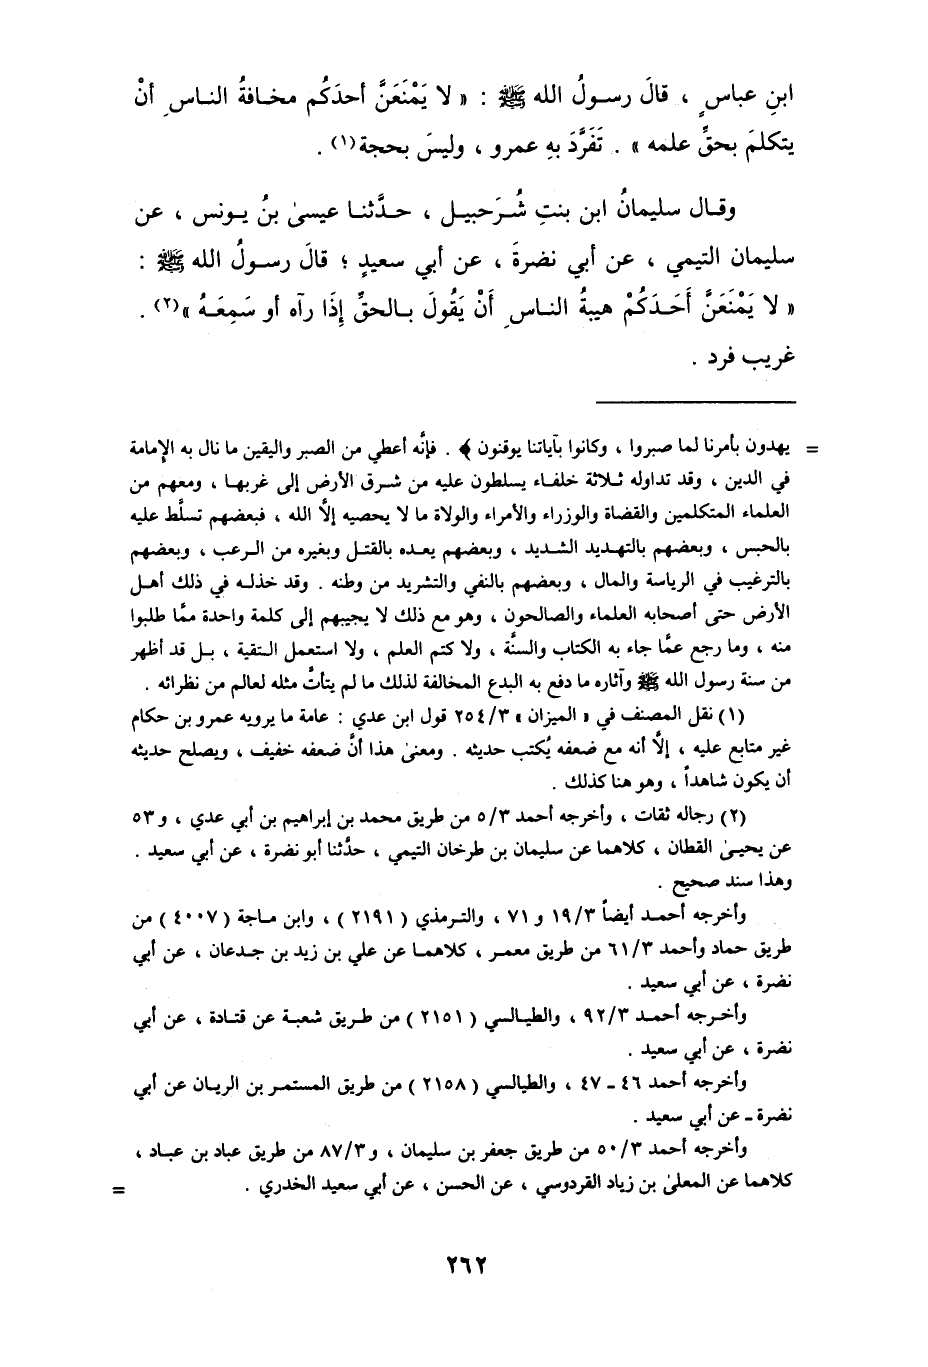 ابنِ عباسٍ ، قالَ رسولُ الله ﷺ : « لا يَمْنَعَنَّ أحدَكُم مخافةُ الناسِ أنْ
يتكلمَ بحقٍّ علمه » . تَفَرَّدَ بهِ عمرو ، وليسَ بحجة(١) .
وقال سليمانُ ابن بنتِ شُرَحبيل ، حدَّثنا عيسىٰ بنُ يونس ، عن
سليمان التيمي ، عن أبي نضرةَ ، عن أبي سعيدٍ ؛ قالَ رسولُ الله ﷺ :
« لا يَمْنَعَنَّ أَحَدَكُمْ هيبةُ الناسِ أَنْ يَقُولَ بالحقِّ إِذَا رآه أو سَمِعَهُ »(٢) .
غريب فرد .
= يهدون بأمرنا لما صبروا ، وكانوا بآياتنا يوقنون ﴾ . فإنَّه أعطي من الصبر واليقين ما نال به الإمامة
في الدين ، وقد تداوله ثلاثة خلفاء يسلطون عليه من شرق الأرض إلى غربها ، ومعهم من
العلماء المتكلمين والقضاة والوزراء والأمراء والولاة ما لا يحصيه إلَّا الله ، فبعضهم تسلَّط عليه
بالحبس ، وبعضهم بالتهديد الشديد ، وبعضهم يعده بالقتل وبغيره من الرعب ، وبعضهم
بالترغيب في الرياسة والمال ، وبعضهم بالنفي والتشريد من وطنه . وقد خذله في ذلك أهل
الأرض حتى أصحابه العلماء والصالحون ، وهو مع ذلك لا يجيبهم إلى كلمة واحدة ممَّا طلبوا
منه ، وما رجع عمَّا جاء به الكتاب والسنَّة ، ولا كتم العلم ، ولا استعمل التقية ، بل قد أظهر
من سنة رسول الله ﷺ وآثاره ما دفع به البدع المخالفة لذلك ما لم يتأتَّ مثله لعالم من نظرائه .
(١) نقل المصنف في « الميزان » ٢٥٤/٣ قول ابن عدي : عامة ما يرويه عمرو بن حكام
غير متابع عليه ، إلَّا أنه مع ضعفه يُكتب حديثه . ومعنىٰ هذا أنَّ ضعفه خفيف ، ويصلح حديثه
أن يكون شاهداً ، وهو هنا كذلك .
(٢) رجاله ثقات ، وأخرجه أحمد ٥/٣ من طريق محمد بن إبراهيم بن أبي عدي ، و ٥٣
عن يحيىٰ القطان ، كلاهما عن سليمان بن طرخان التيمي ، حدَّثنا أبو نضرة ، عن أبي سعيد .
وهذا سند صحيح .
وأخرجه أحمد أيضاً ١٩/٣ و ٧١ ، والترمذي ( ٢١٩١ ) ، وابن ماجة ( ٤٠٠٧ ) من
طريق حماد وأحمد ٦١/٣ من طريق معمر ، كلاهما عن علي بن زيد بن جدعان ، عن أبي
نضرة ، عن أبي سعيد .
وأخرجه أحمد ٩٢/٣ ، والطيالسي ( ٢١٥١ ) من طريق شعبة عن قتادة ، عن أبي
نضرة ، عن أبي سعيد .
وأخرجه أحمد ٤٦ ـ ٤٧ ، والطيالسي ( ٢١٥٨ ) من طريق المستمر بن الريان عن أبي
نضرة ـ عن أبي سعيد .
وأخرجه أحمد ٥٠/٣ من طريق جعفر بن سليمان ، و ٨٧/٣ من طريق عباد بن عباد ،
كلاهما عن المعلىٰ بن زياد القردوسي ، عن الحسن ، عن أبي سعيد الخدري . =
٢٦٢